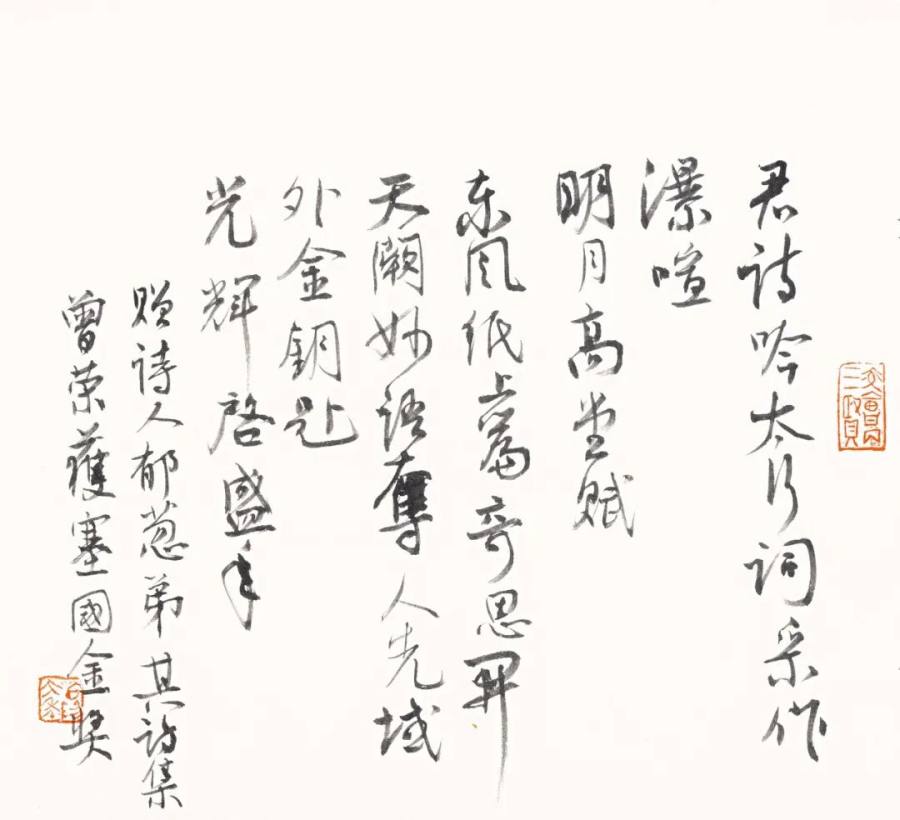 君诗吟太行词采作
瀑喧
明月高堂赋
东风纸上篇奇思開
天阙妙语奪人先域
外金钥匙
光辉啓盛年
赠诗人郁葱弟 其诗集
曾荣獲塞國金奖